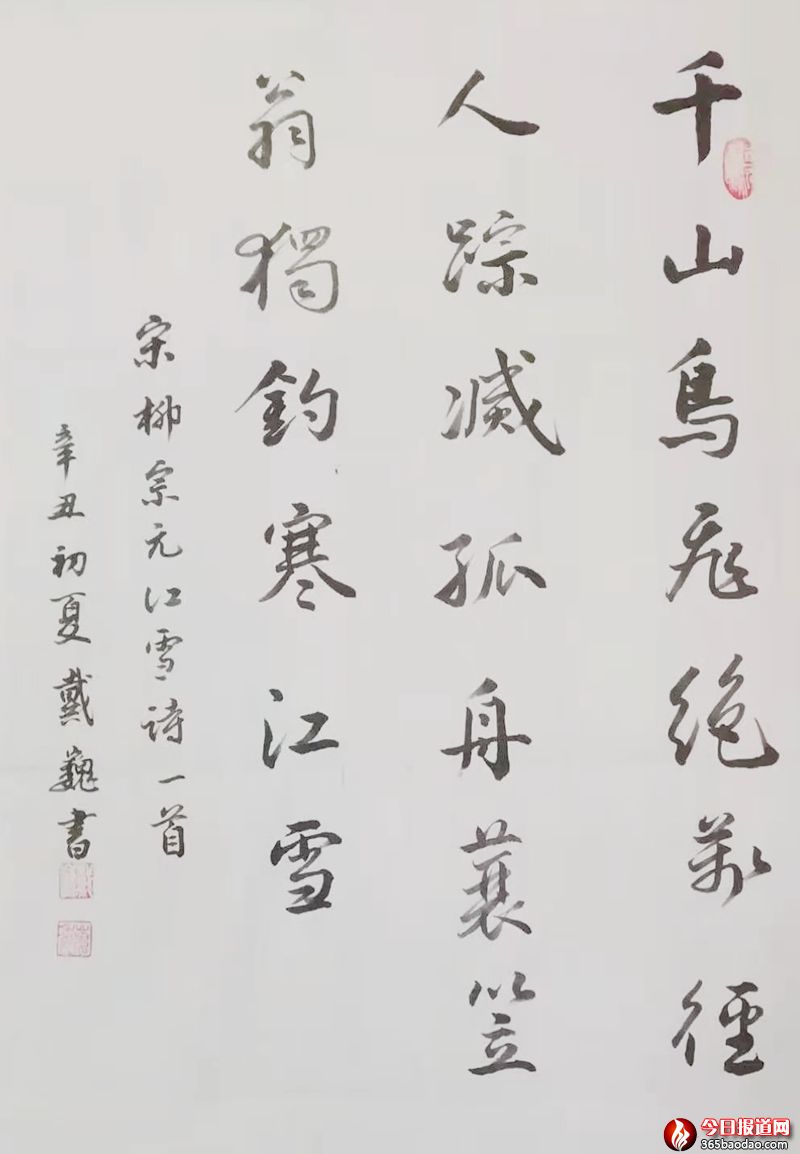 千山鳥飛絶萬徑
人踪滅孤舟蓑笠
翁獨釣寒江雪
宋柳宗元江雪诗一首
辛丑初夏戴巍書
今日报道网
365baodao.com